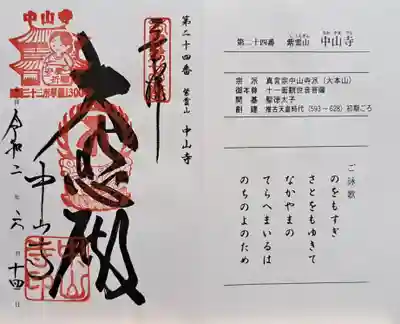 第二十四番 紫雲山 中山寺
中山寺
大悲殿
中山寺
令和二年六月十四日
第二十四番 紫雲山 中山寺
宗派 真言宗中山寺派（大本山）
御本尊 十一面観世音菩薩
開基 聖徳太子
創建 推古天皇時代（593－628）初期ごろ
ご詠歌
のをもすぎ
さとをもゆきて
なかやまの
てらへまいるは
のちのよのため